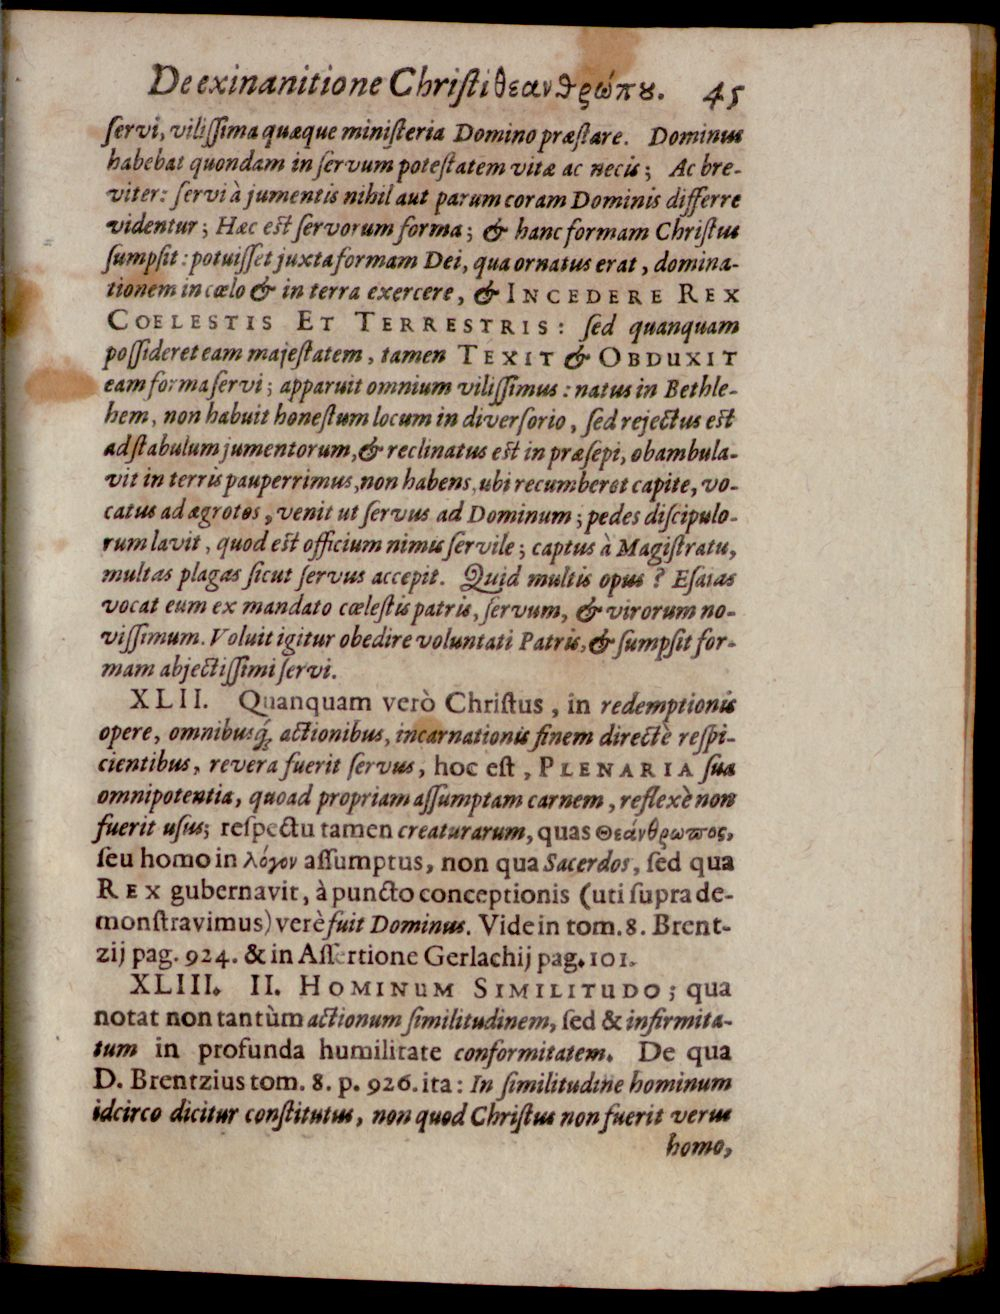 De exinanitione Christi θεανθρώπȣ. 45
servi, vilissima quæque ministeria Domino præstare. Dominus
habebat quondam in servum potestatem vitæ ac necis; Ac bre-
viter: servi à jumentis nihil aut parum coram Dominis differre
videntur; Hæc est servorum forma; & hanc formam Christus
sumpsit: potuisset juxta formam Dei, qua ornatus erat, domina-
tionem in cœlo & in terra exercere, & INCEDERE REX
COELESTIS ET TERRESTRIS: sed quanquam
possideret eam majestatem, tamen TEXIT & OBDUXIT
eam forma servi; apparuit omnium vilissimus: natus in Bethle-
hem, non habuit honestum locum in diversorio, sed rejectus est
ad stabulum jumentorum, & reclinatus est in præsepi, obambula-
vit in terris pauperrimus, non habens, ubi recumberet capite, vo-
catus ad ægrotos, venit ut servus ad Dominum; pedes discipulo-
rum lavit, quod est officium nimis servile; captus à Magistratu,
multas plagas sicut servus accepit. Quid multis opus? Esaias
vocat eum ex mandato cœlestis patris, servum, & virorum no-
vissimum. Voluit igitur obedire voluntati Patris, & sumpsit for-
mam abjectissimi servi.
XLII. Quanquam verò Christus, in redemptionis
opere, omnibusq́; actionibus, incarnationis finem directè respi-
cientibus, revera fuerit servus, hoc est, PLENARIA sua
omnipotentia, quoad propriam assumptam carnem, reflexè non
fuerit usus; respectu tamen creaturarum, quas Θεάνθρωπος,
seu homo in λόγον assumptus, non qua Sacerdos, sed qua
REX gubernavit, à puncto conceptionis (uti supra de-
monstravimus) verè fuit Dominus. Vide in tom. 8. Brent-
zij pag. 924. & in Assertione Gerlachij pag. 101.
XLIII. II. HOMINUM SIMILITUDO; qua
notat non tantùm actionum similitudinem, sed & infirmita-
tum in profunda humilitate conformitatem. De qua
D. Brentzius tom. 8. p. 926. ita: In similitudine hominum
idcirco dicitur constitutus, non quod Christus non fuerit verus
homo,